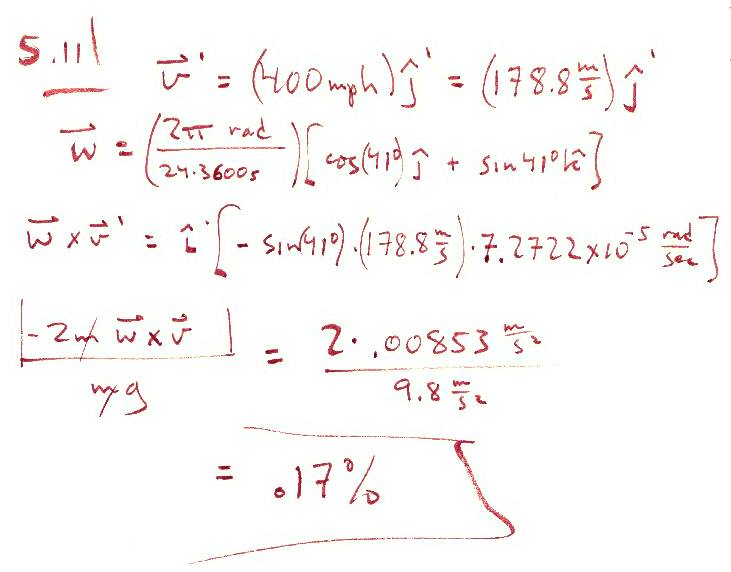 5.11 v⃗' = (400mph)ĵ' = (178.8 m/s) ĵ'
w⃗ = (2π rad / 24·3600s)[cos(41°)ĵ + sin41°k̂]
w⃗ × v⃗' = î'[- sin(41°)·(178.8 m/s)·7.2722×10⁻⁵ rad/sec]
|-2m w⃗ × v⃗| / mg = 2·.00853 m/s² / 9.8 m/s²
= .17%